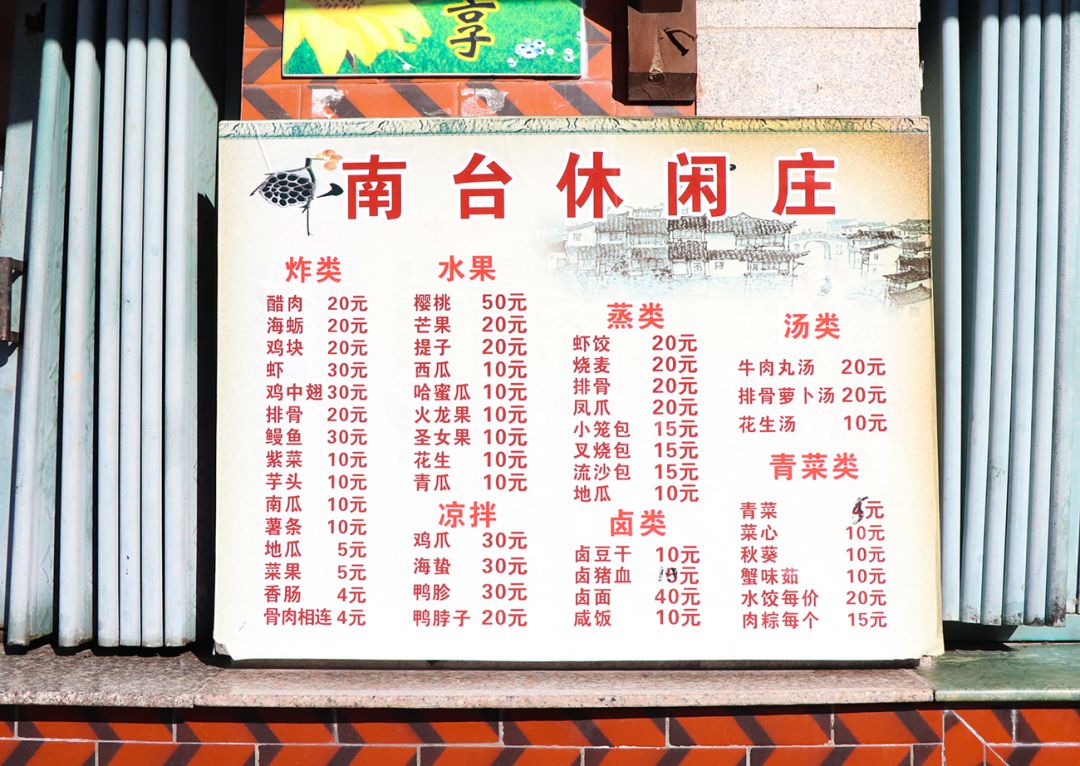 享
南台休闲庄
炸类
醋肉 20元
海蛎 20元
鸡块 20元
虾 30元
鸡中翅 30元
排骨 20元
鳗鱼 30元
紫菜 10元
芋头 10元
南瓜 10元
薯条 10元
地瓜 5元
菜果 5元
香肠 4元
骨肉相连 4元
水果
樱桃 50元
芒果 20元
提子 20元
西瓜 10元
哈蜜瓜 10元
火龙果 10元
圣女果 10元
花生 10元
青瓜 10元
凉拌
鸡爪 30元
海蛰 30元
鸭胗 30元
鸭脖子 20元
蒸类
虾饺 20元
烧麦 20元
排骨 20元
凤爪 20元
小笼包 15元
叉烧包 15元
流沙包 15元
地瓜 10元
卤类
卤豆干 10元
卤猪血 元
卤面 40元
咸饭 10元
汤类
牛肉丸汤 20元
排骨萝卜汤 20元
花生汤 10元
青菜类
青菜 元
菜心 10元
秋葵 10元
蟹味茹 10元
水饺每价 20元
肉粽每个 15元